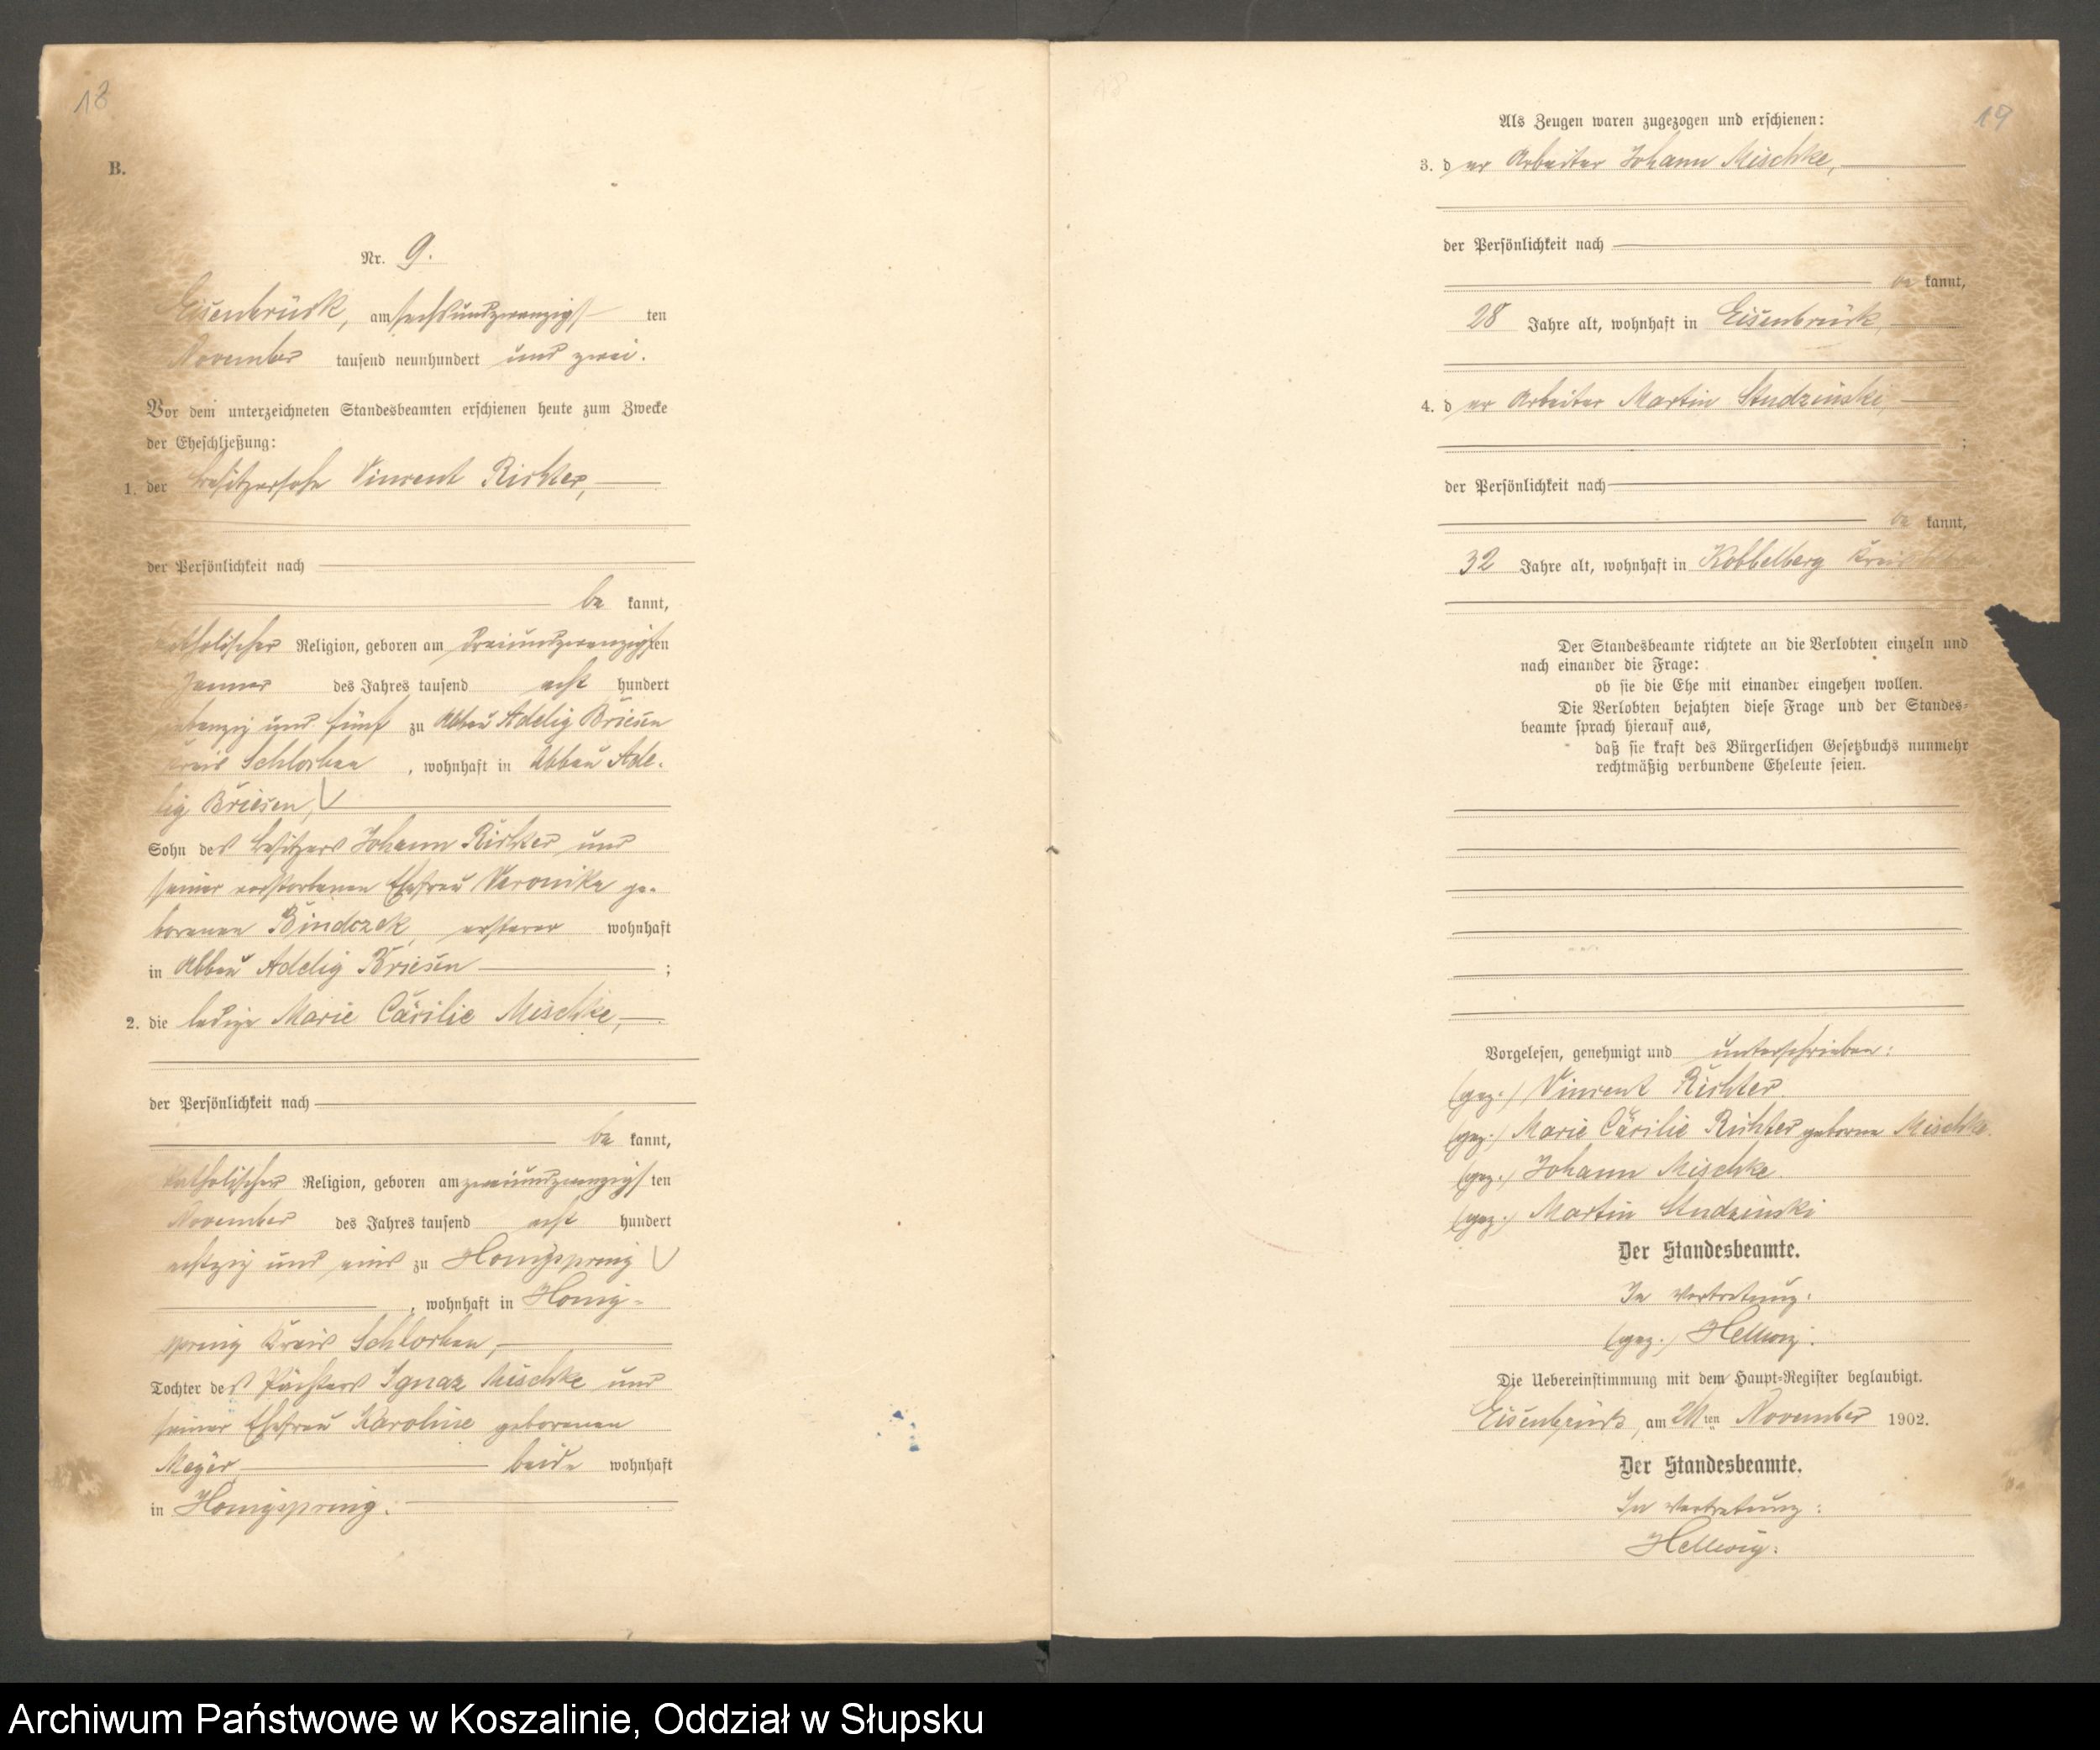 18
B.
Nr. 9.
Eisenbrück, am sechsundzwanzigsten
November tausend neunhundert und zwei.
Vor dem unterzeichneten Standesbeamten erschienen heute zum Zwecke
der Eheschließung:
1. der Besitzersohn Vincent Richter,
der Persönlichkeit nach
bekannt,
katholischer Religion, geboren am dreiundzwanzigsten
Januar des Jahres tausend acht hundert
siebenzig und fünf zu Abbau Adelig Briesen
Kreis Schlochau, wohnhaft in Abbau Ade-
lig Briesen,
Sohn des Besitzers Johann Richter und
seiner verstorbenen Ehefrau Veronika ge-
borenen Bindczek, ersterer wohnhaft
in Abbau Adelig Briesen;
2. die ledige Marie Cäcilie Mischke,
der Persönlichkeit nach
bekannt,
katholischer Religion, geboren am zweiundzwanzigsten
November des Jahres tausend acht hundert
achtzig und eins zu Honigspring
, wohnhaft in Honig-
spring Kreis Schlochau,
Tochter des Pächters Ignaz Mischke und
seiner Ehefrau Karoline geborenen
Meyer beide wohnhaft
in Honigspring.
19
Als Zeugen waren zugezogen und erschienen:
3. der Arbeiter Johann Mischke,
der Persönlichkeit nach
bekannt,
28 Jahre alt, wohnhaft in Eisenbrück,
4. der Arbeiter Martin Studzinski,
;
der Persönlichkeit nach
bekannt,
32 Jahre alt, wohnhaft in Kobbelberg Kreis
Der Standesbeamte richtete an die Verlobten einzeln und
nach einander die Frage:
ob sie die Ehe mit einander eingehen wollen.
Die Verlobten bejahten diese Frage und der Standes-
beamte sprach hierauf aus,
daß sie kraft des Bürgerlichen Gesetzbuchs nunmehr
rechtmäßig verbundene Eheleute seien.
Vorgelesen, genehmigt und unterschrieben:
(gez.) Vincent Richter.
(gez.) Marie Cäcilie Richter geborne Mischke.
(gez.) Johann Mischke.
(gez.) Martin Studzinski
Der Standesbeamte.
In Vertretung:
(gez.) Hellwig.
Die Uebereinstimmung mit dem Haupt-Register beglaubigt.
Eisenbrück, am 26ten November 1902.
Der Standesbeamte.
In Vertretung:
Hellwig.
Archiwum Państwowe w Koszalinie, Oddział w Słupsku